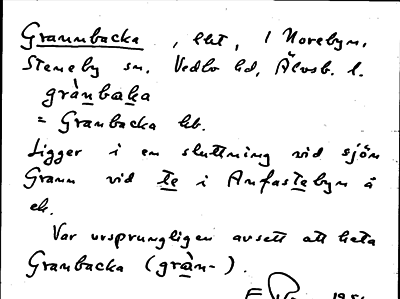 Grannbacka, lht, i Norebyn,
Steneby sn. Vedbo hd, Älvsb. l.
grànbaka
= Granbacka hb.
Ligger i en sluttning vid sjön
Grann vid te i Anfastebyn å
ek.
Var ursprungligen avsett att heta
Granbacka (gràn-).